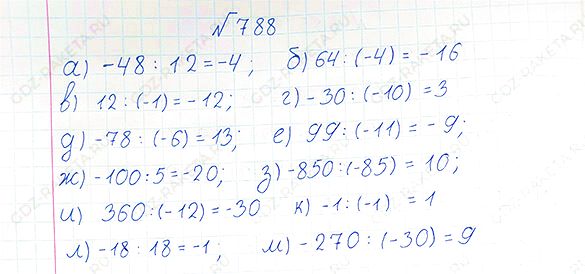 №788
а) -48 : 12 = -4; б) 64 : (-4) = -16
в) 12 : (-1) = -12; г) -30 : (-10) = 3
д) -78 : (-6) = 13; е) 99 : (-11) = -9;
ж) -100 : 5 = -20; з) -850 : (-85) = 10;
и) 360 : (-12) = -30 к) -1 : (-1) = 1
л) -18 : 18 = -1; м) -270 : (-30) = 9